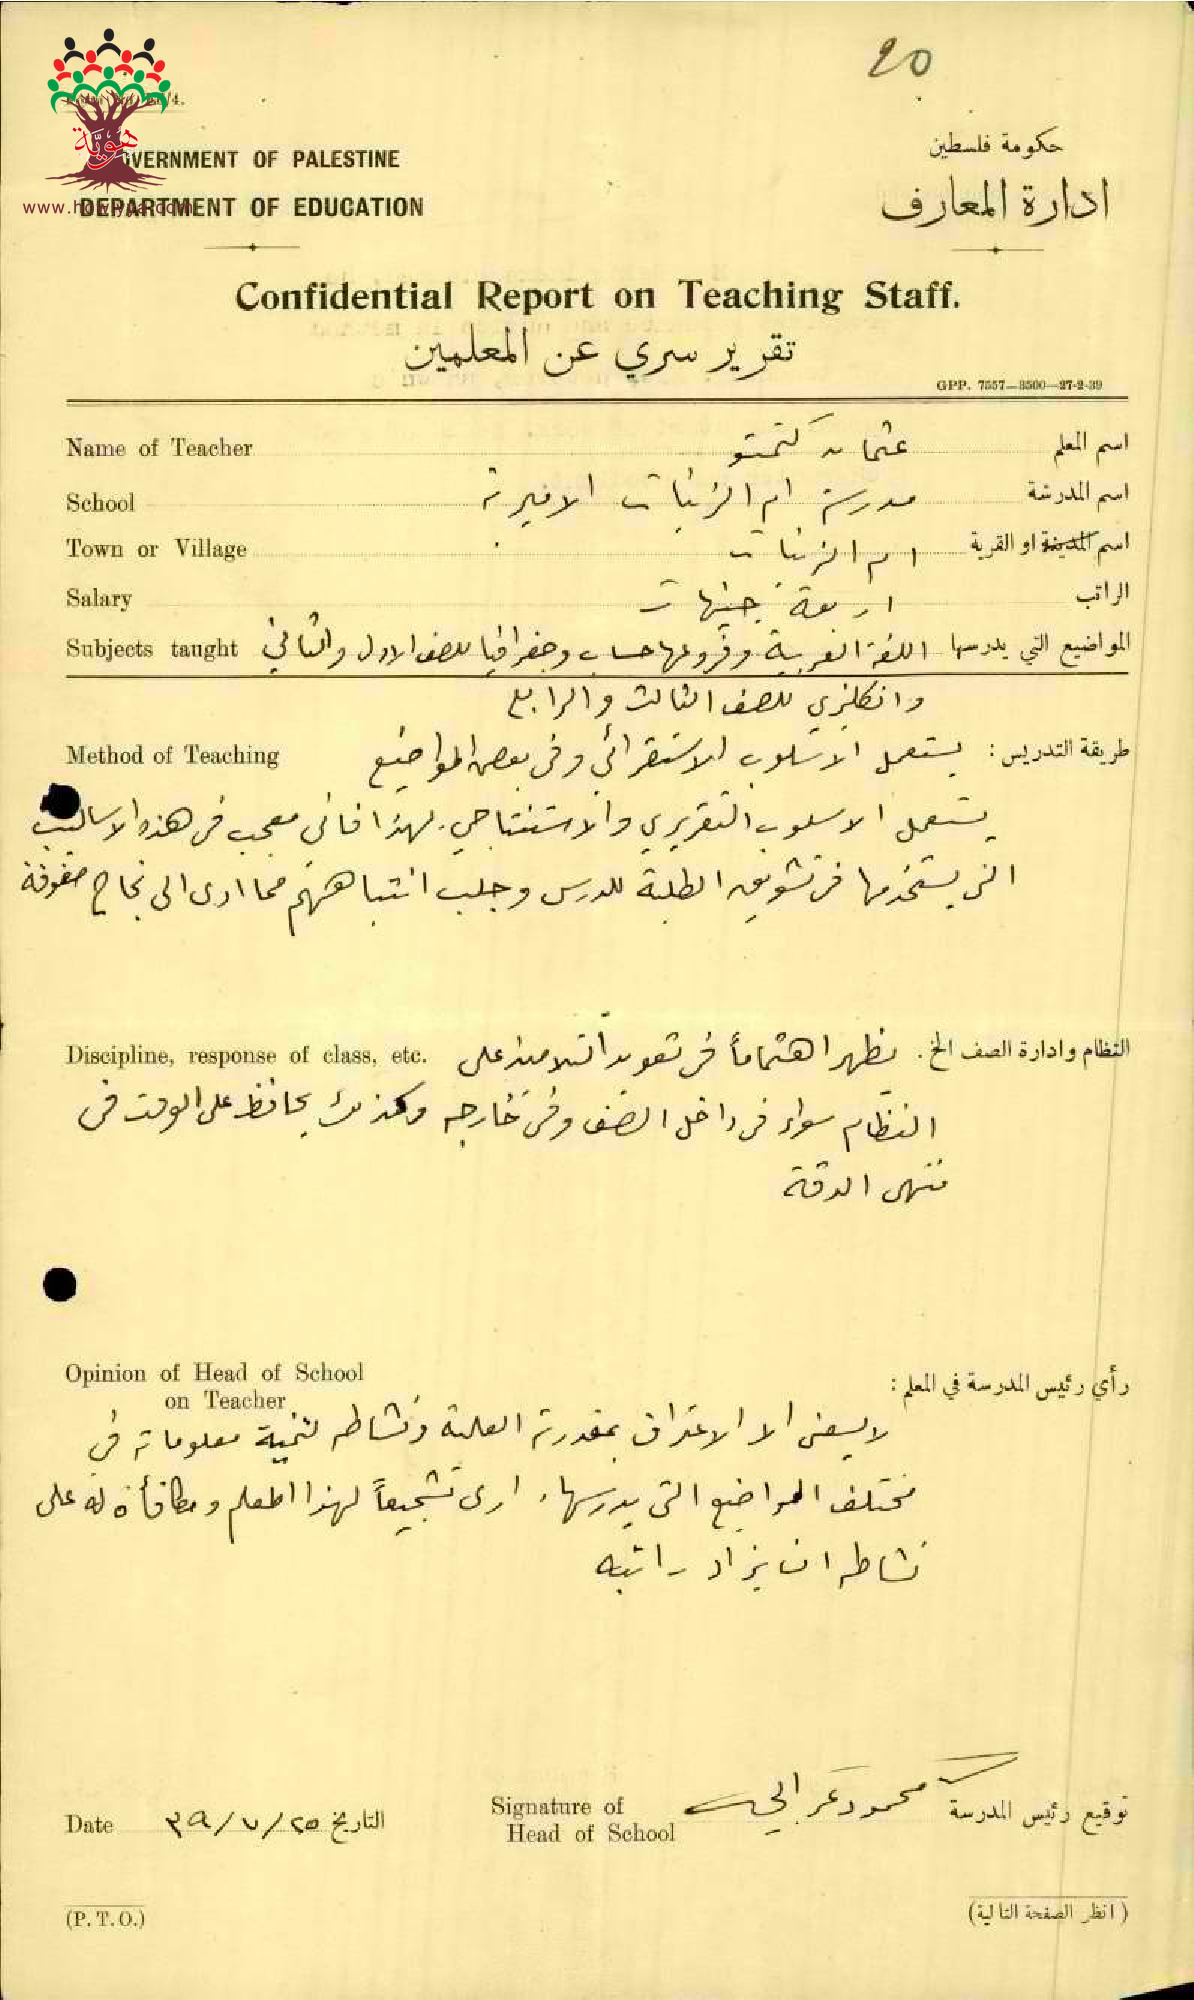 20
هَوِيَّة
www.howiyya.com
GOVERNMENT OF PALESTINE
DEPARTMENT OF EDUCATION
حكومة فلسطين
ادارة المعارف
Confidential Report on Teaching Staff.
تقرير سري عن المعلمين
GPP. 7557—3500—27-2-39
Name of Teacher عثمان اسم المعلم
School مدرسة ام الزينات الاميرية اسم المدرسة
Town or Village ام الزينات اسم المدينة او القرية
Salary اربعة جنيهات الراتب
Subjects taught المواضيع التي يدرسها اللغة العربية وفروعها حساب وجغرافيا للصف الاول والثاني
وانكليزي للصف الثالث والرابع
Method of Teaching طريقة التدريس : يستعمل الاسلوب الاستقرائي وفي بعض المواضيع
يستعمل الاسلوب التقريري والاستنتاجي. لهذا فاني معجب في هذه الاساليب
التي يستخدمها في تشويق الطلبة للدرس وجلب انتباههم مما ادى الى نجاح صفوفه
Discipline, response of class, etc. النظام وادارة الصف الخ . يظهر اهتماماً في تعويد التلاميذ على
النظام سواء في داخل الصف وفي خارجه وكذلك يحافظ على الوقت في
منتهى الدقة
Opinion of Head of School
on Teacher
رأي رئيس المدرسة في المعلم :
لا يسعني الا الاعتراف بمقدرته العلمية ونشاطه لتنمية معلوماته في
مختلف المواضيع التي يدرسها. ارى تشجيعاً لهذا المعلم ومكافأة له على
نشاطه ان يزاد راتبه
Date ٢٥/٧/٣٩ التاريخ
Signature of
Head of School
محمود توقيع رئيس المدرسة
(P. T. O.)
( انظر الصفحة التالية)